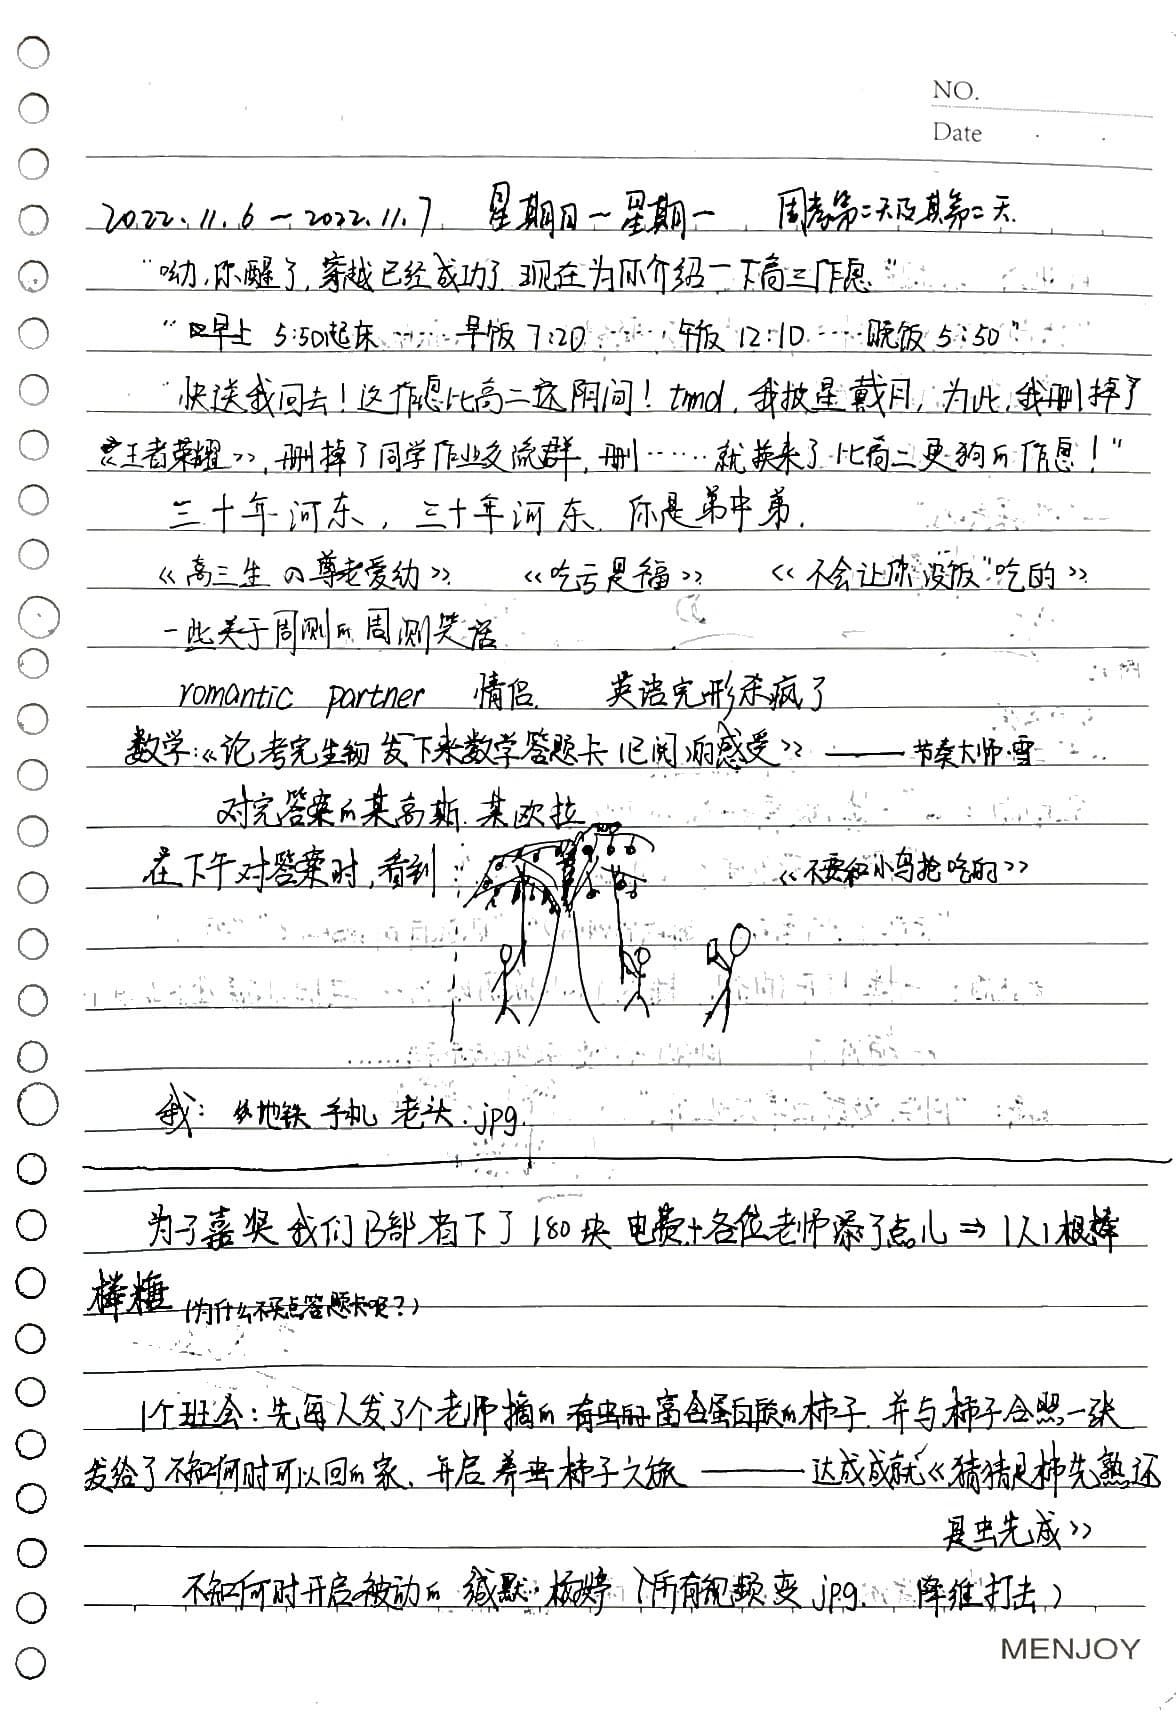 NO.
Date
2022.11.6—2022.11.7 星期日—星期一 周考第二天及其第二天.
“呦,你醒了,穿越已经成功了 现在为你介绍一下高三作息”
“早上 5:50起床……早饭 7:20……午饭 12:10……晚饭 5:50”
“快送我回去！这作息比高二还阴间！tmd,我披星戴月,为此,我删掉了
《王者荣耀》,删掉了同学作业交流群,删……就换来了比高二更狗的作息！”
三十年河东,三十年河东.你是弟中弟.
《高三生の尊老爱幼》 《吃亏是福》 《不会让你没饭“吃的》
一些关于周测的周测笑话
romantic partner 情侣. 英语完形杀疯了
数学:《论考完生物发下来数学答题卡(已阅)的感受》——节奏大师·雪
对完答案的某高斯.某欧拉
在下午对答案时,看到: 《不要和小鸟抢吃的》
我: 地铁 手机 老头.jpg.
为了嘉奖我们B部省下了180块电费+各位老师添了点儿⇒1人1根棒
棒糖(为什么不买点答题卡呢?)
1个班会:先每人发了个老师摘的有虫的富含蛋白质的柿子.并与柿子合照一张
发给了不知何时可以回的家.开启养虫柿子之旅——达成成就《猜猜是柿先熟还
是虫先成》
不知何时开启被动的 缄默·杨婷(所有视频变.jpg. 降维打击)
MENJOY